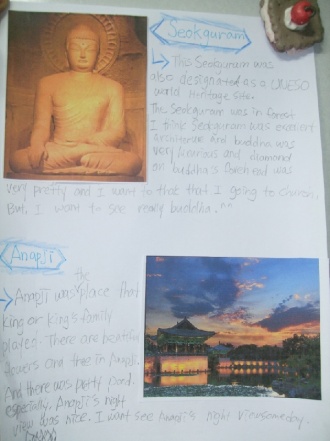 Seokguram
↳ This Seokguram was
also designated as a UNESO
world Heritage site.
The Seokguram was in forest
I think Seokguram was
Architecture And buddha was
very generous and diamond
on buddha's forehead was
very pretty and I want to that that I going to church.
But, I want to see really buddha. ^^
Anapji
the
→ Anapji was place that
king or king's family
played. There are beautiful
flowers and tree in Anapji.
And there was pretty pond.
especially, Anapji's night
view was nice. I want see Anapji's night view someday.